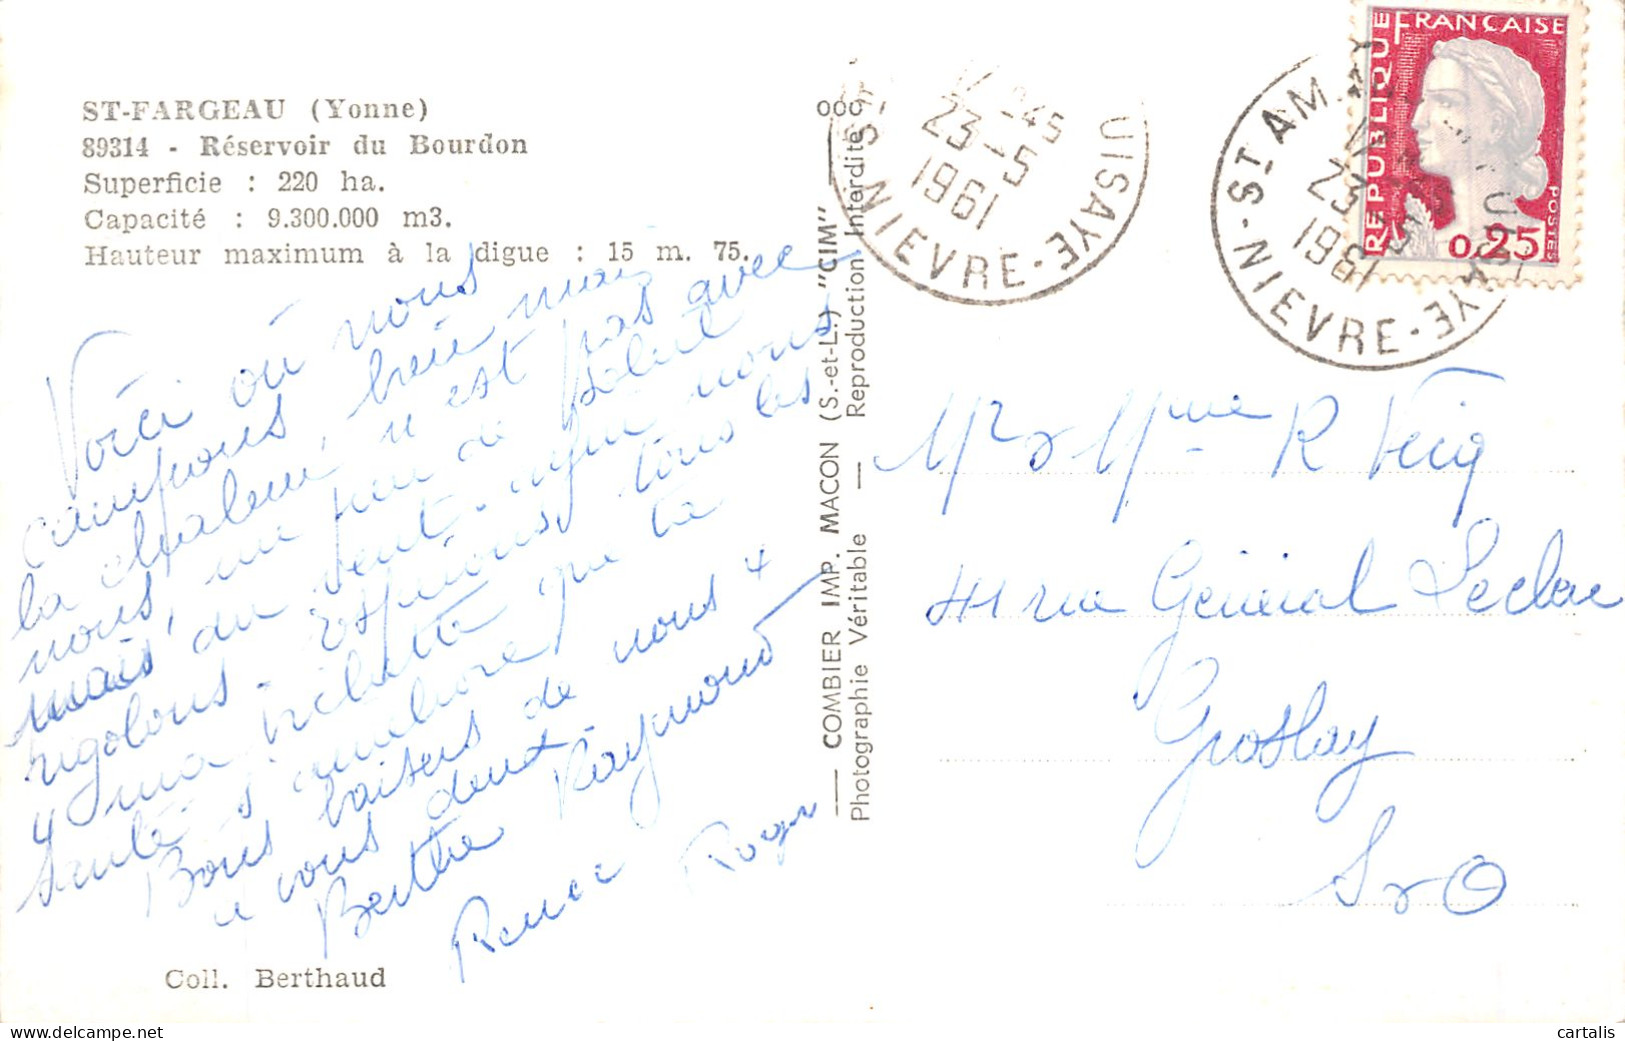 ST-FARGEAU (Yonne)
89314 - Réservoir du Bourdon
Superficie : 220 ha.
Capacité : 9.300.000 m3.
Hauteur maximum à la digue : 15 m. 75.
Voici où nous
campons, mais
la chaleur, n'est pas avec
nous, un peu de soleil
mais, du vent. enfin nous
rigolons. Espérions tous les
4 ma que ta
santé s'améliore
Bons baisers de nous 4
a vous deux.
Berthe Raymond
Renée Roger
Coll. Berthaud
COMBIER IMP. MACON (S.-et-L.) "CIM"
Photographie Véritable — Reproduction Interdite
000
1945
23-5
1961
UISAYE - NIEVRE
REPUBLIQUE FRANÇAISE
POSTES
0,25
ST AM UISAYE - NIEVRE
23-5
1961
Mr & Mme R
41 rue Général Leclerc
Groslay
S & O
cartalis